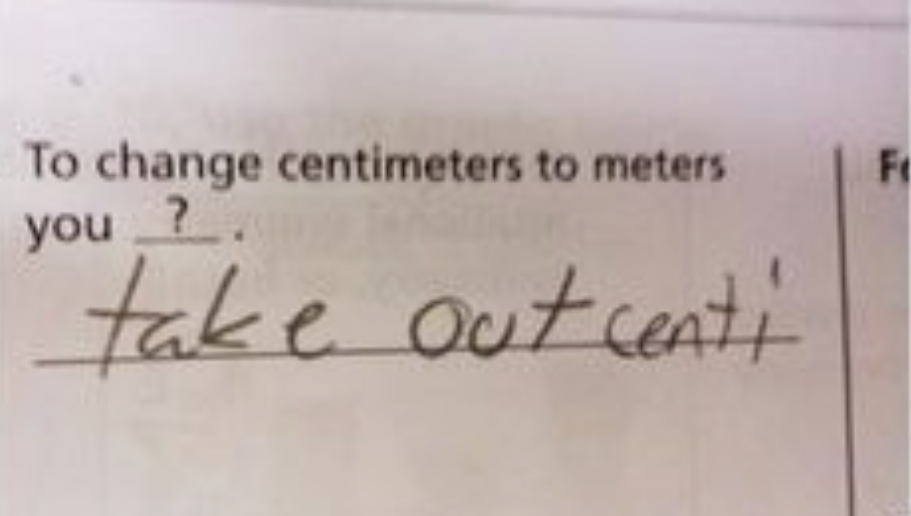 To change centimeters to meters
you ? .
take out centi